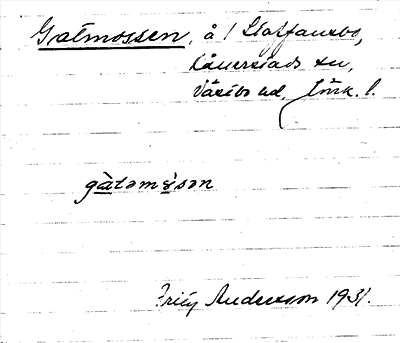 Gatmossen, å 1 Staffansbo,
Kånerstads sn,
Västbo hd. Jönk. l.
gàtəmɷ̀sən
Fritz Andersson 1931.